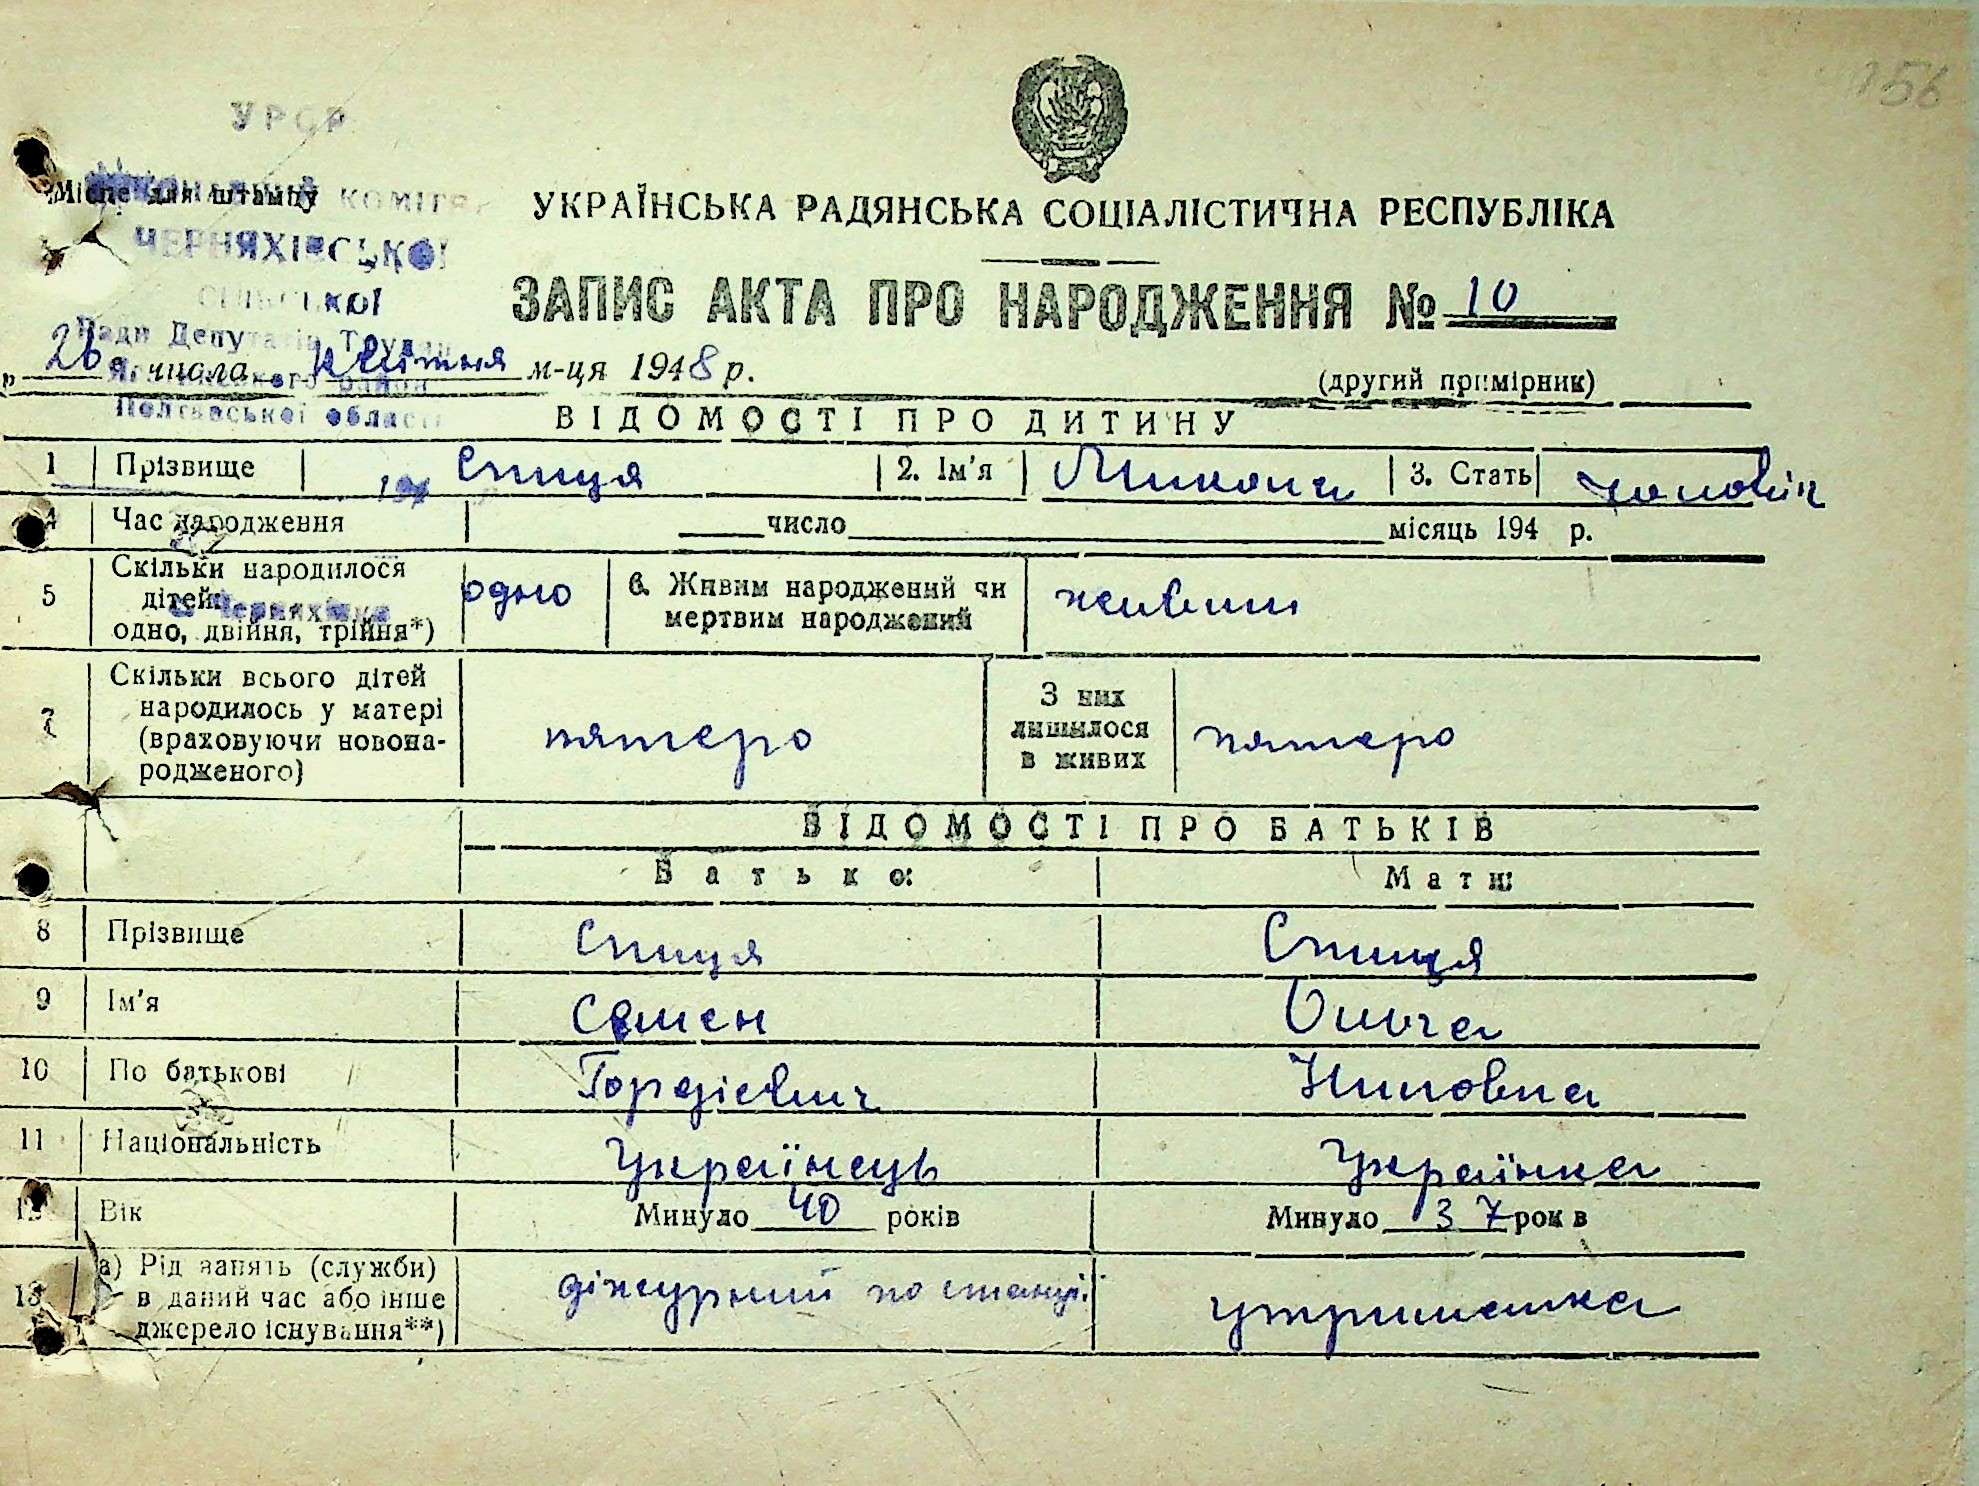 56
УРСР
Місце для штампу
КОМІТЕ
УКРАЇНСЬКА РАДЯНСЬКА СОЦІАЛІСТИЧНА РЕСПУБЛІКА
ЧЕРНЯХІВСЬКОЇ
СІЛЬСЬКОЇ
ЗАПИС АКТА ПРО НАРОДЖЕННЯ № 10
Ради Депутатів Трудящ
„26 числа квітня м-ця 1948 р.
району
(другий примірник)
Полтавської області
ВІДОМОСТІ ПРО ДИТИНУ
1 Прізвище Спиця 2. Ім'я Микола 3. Стать чоловіч
4 Час народження число місяць 194 р.
5 Скільки народилося дітей: одно, двійня, трійня*) одно 6. Живим народжений чи мертвим народжений живим
с. Черняхівка
7 Скільки всього дітей народилось у матері (враховуючи новонародженого) пятеро З них лишилося в живих пятеро
ВІДОМОСТІ ПРО БАТЬКІВ
Батько: Мати:
8 Прізвище Спиця Спиця
9 Ім'я Семен Ольга
10 По батькові Гордієвич Ниловна
11 Національність Українець Українка
12 Вік Минуло 40 років Минуло 37 років
13 а) Рід занять (служби) в даний час або інше джерело існування**) діжурний по станції утриманка